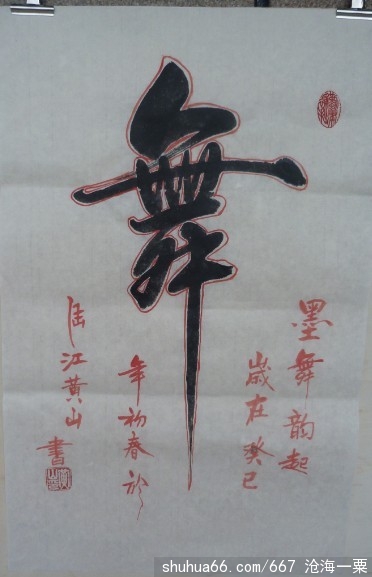 舞
墨舞韵起
歲在癸巳
年初春於
江黄山
書
shuhua66.com/667 沧海一粟